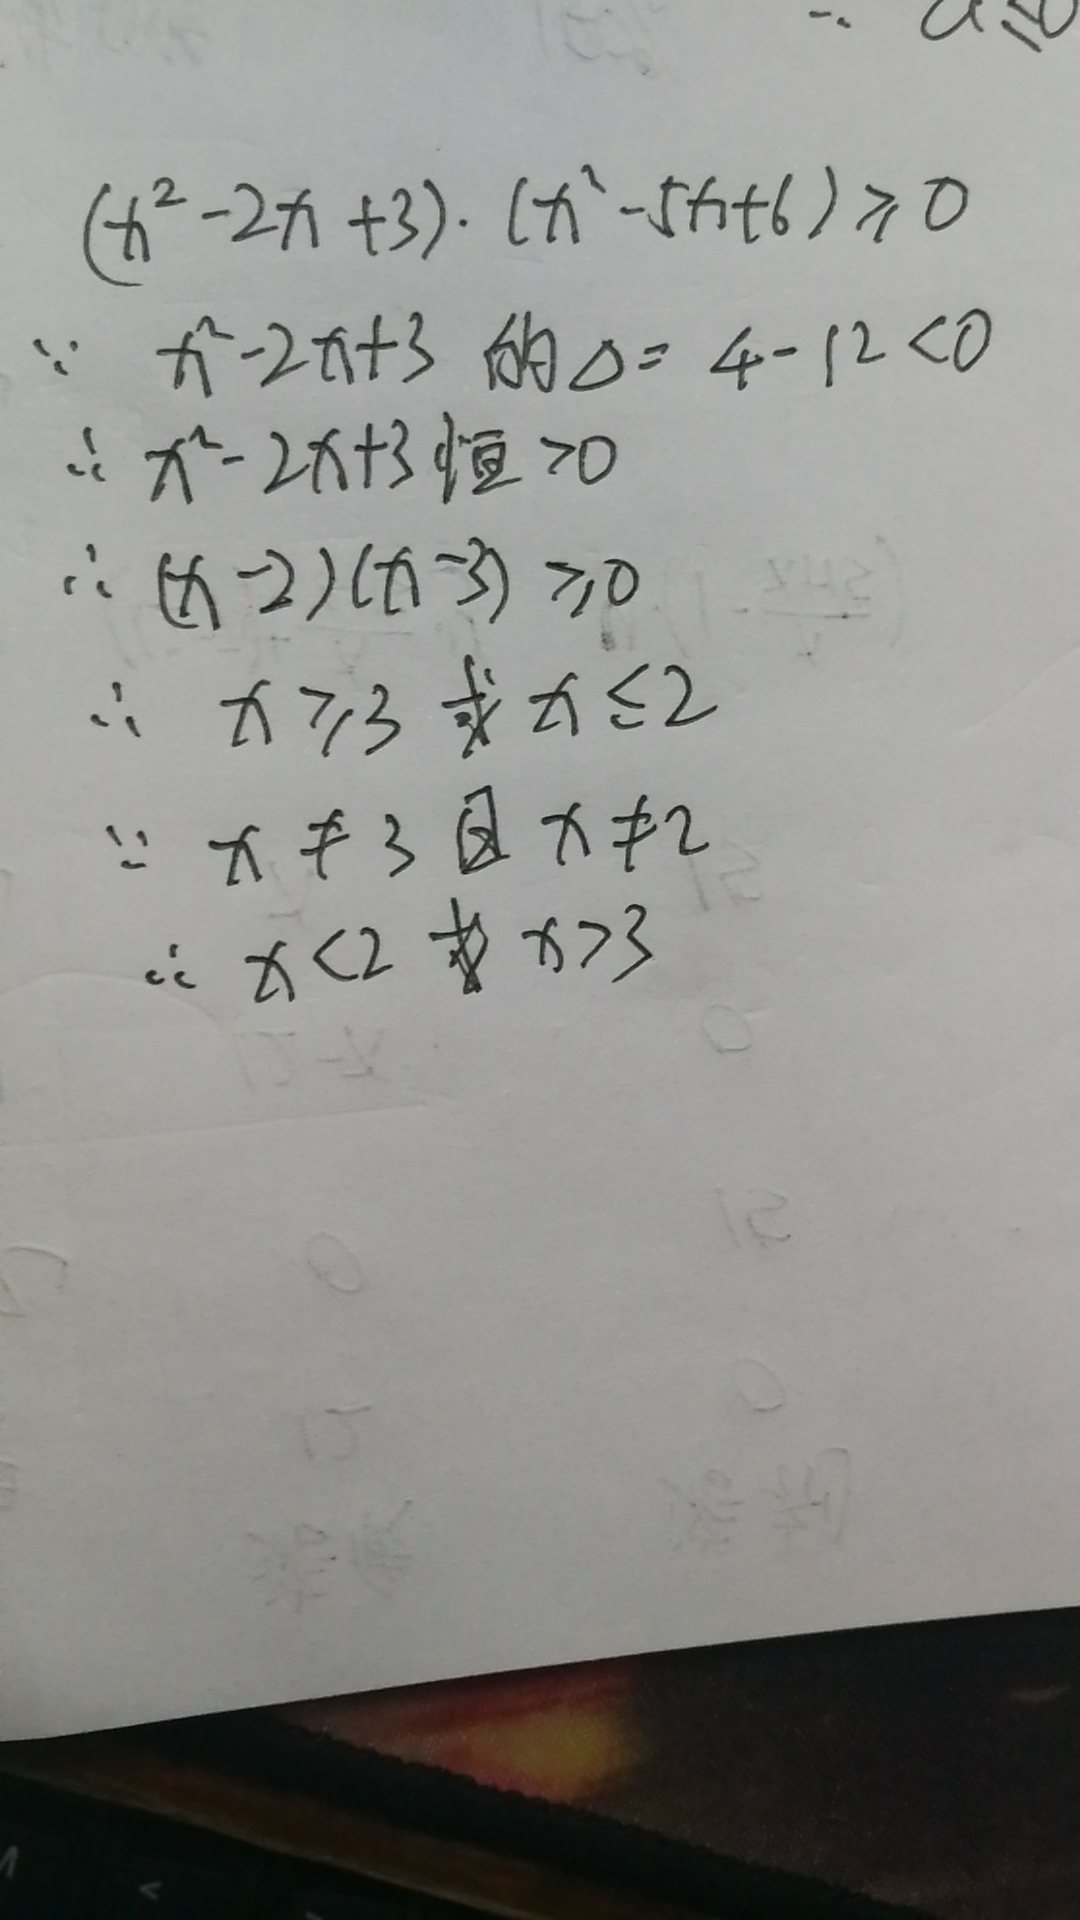 ∴ a≤0
(x²-2x+3)·(x²-5x+6)≥0
∵ x²-2x+3 的△=4-12<0
∴ x²-2x+3恒>0
∴ (x-2)(x-3)≥0
∴ x≥3 或 x≤2
∵ x≠3 且 x≠2
∴ x<2 或 x>3